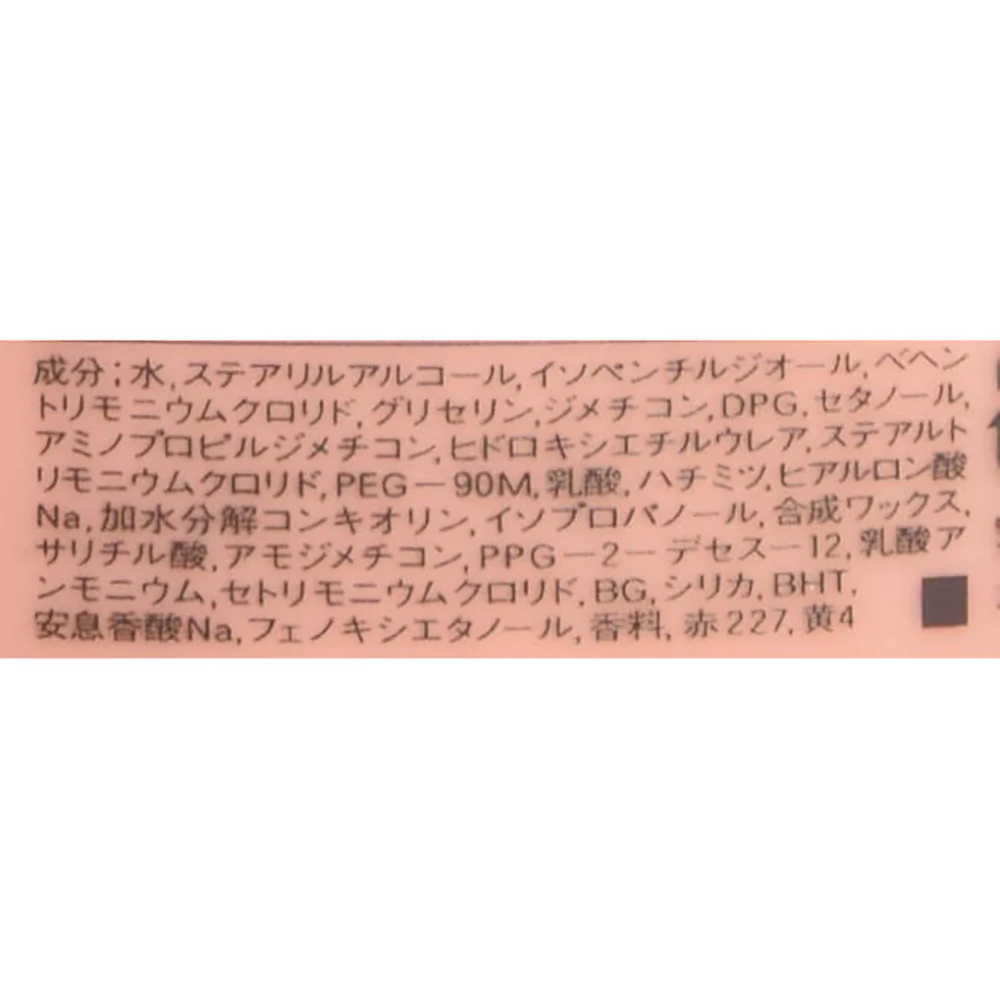 成分;水,ステアリルアルコール,イソペンチルジオール,ベヘン
トリモニウムクロリド,グリセリン,ジメチコン,DPG,セタノール,
アミノプロピルジメチコン,ヒドロキシエチルウレア,ステアルト
リモニウムクロリド,PEG－90M,乳酸,ハチミツ,ヒアルロン酸
Na,加水分解コンキオリン,イソプロパノール,合成ワックス,
サリチル酸,アモジメチコン,PPG－2－デセス－12,乳酸ア
ンモニウム,セトリモニウムクロリド,BG,シリカ,BHT,
安息香酸Na,フェノキシエタノール,香料,赤227,黄4